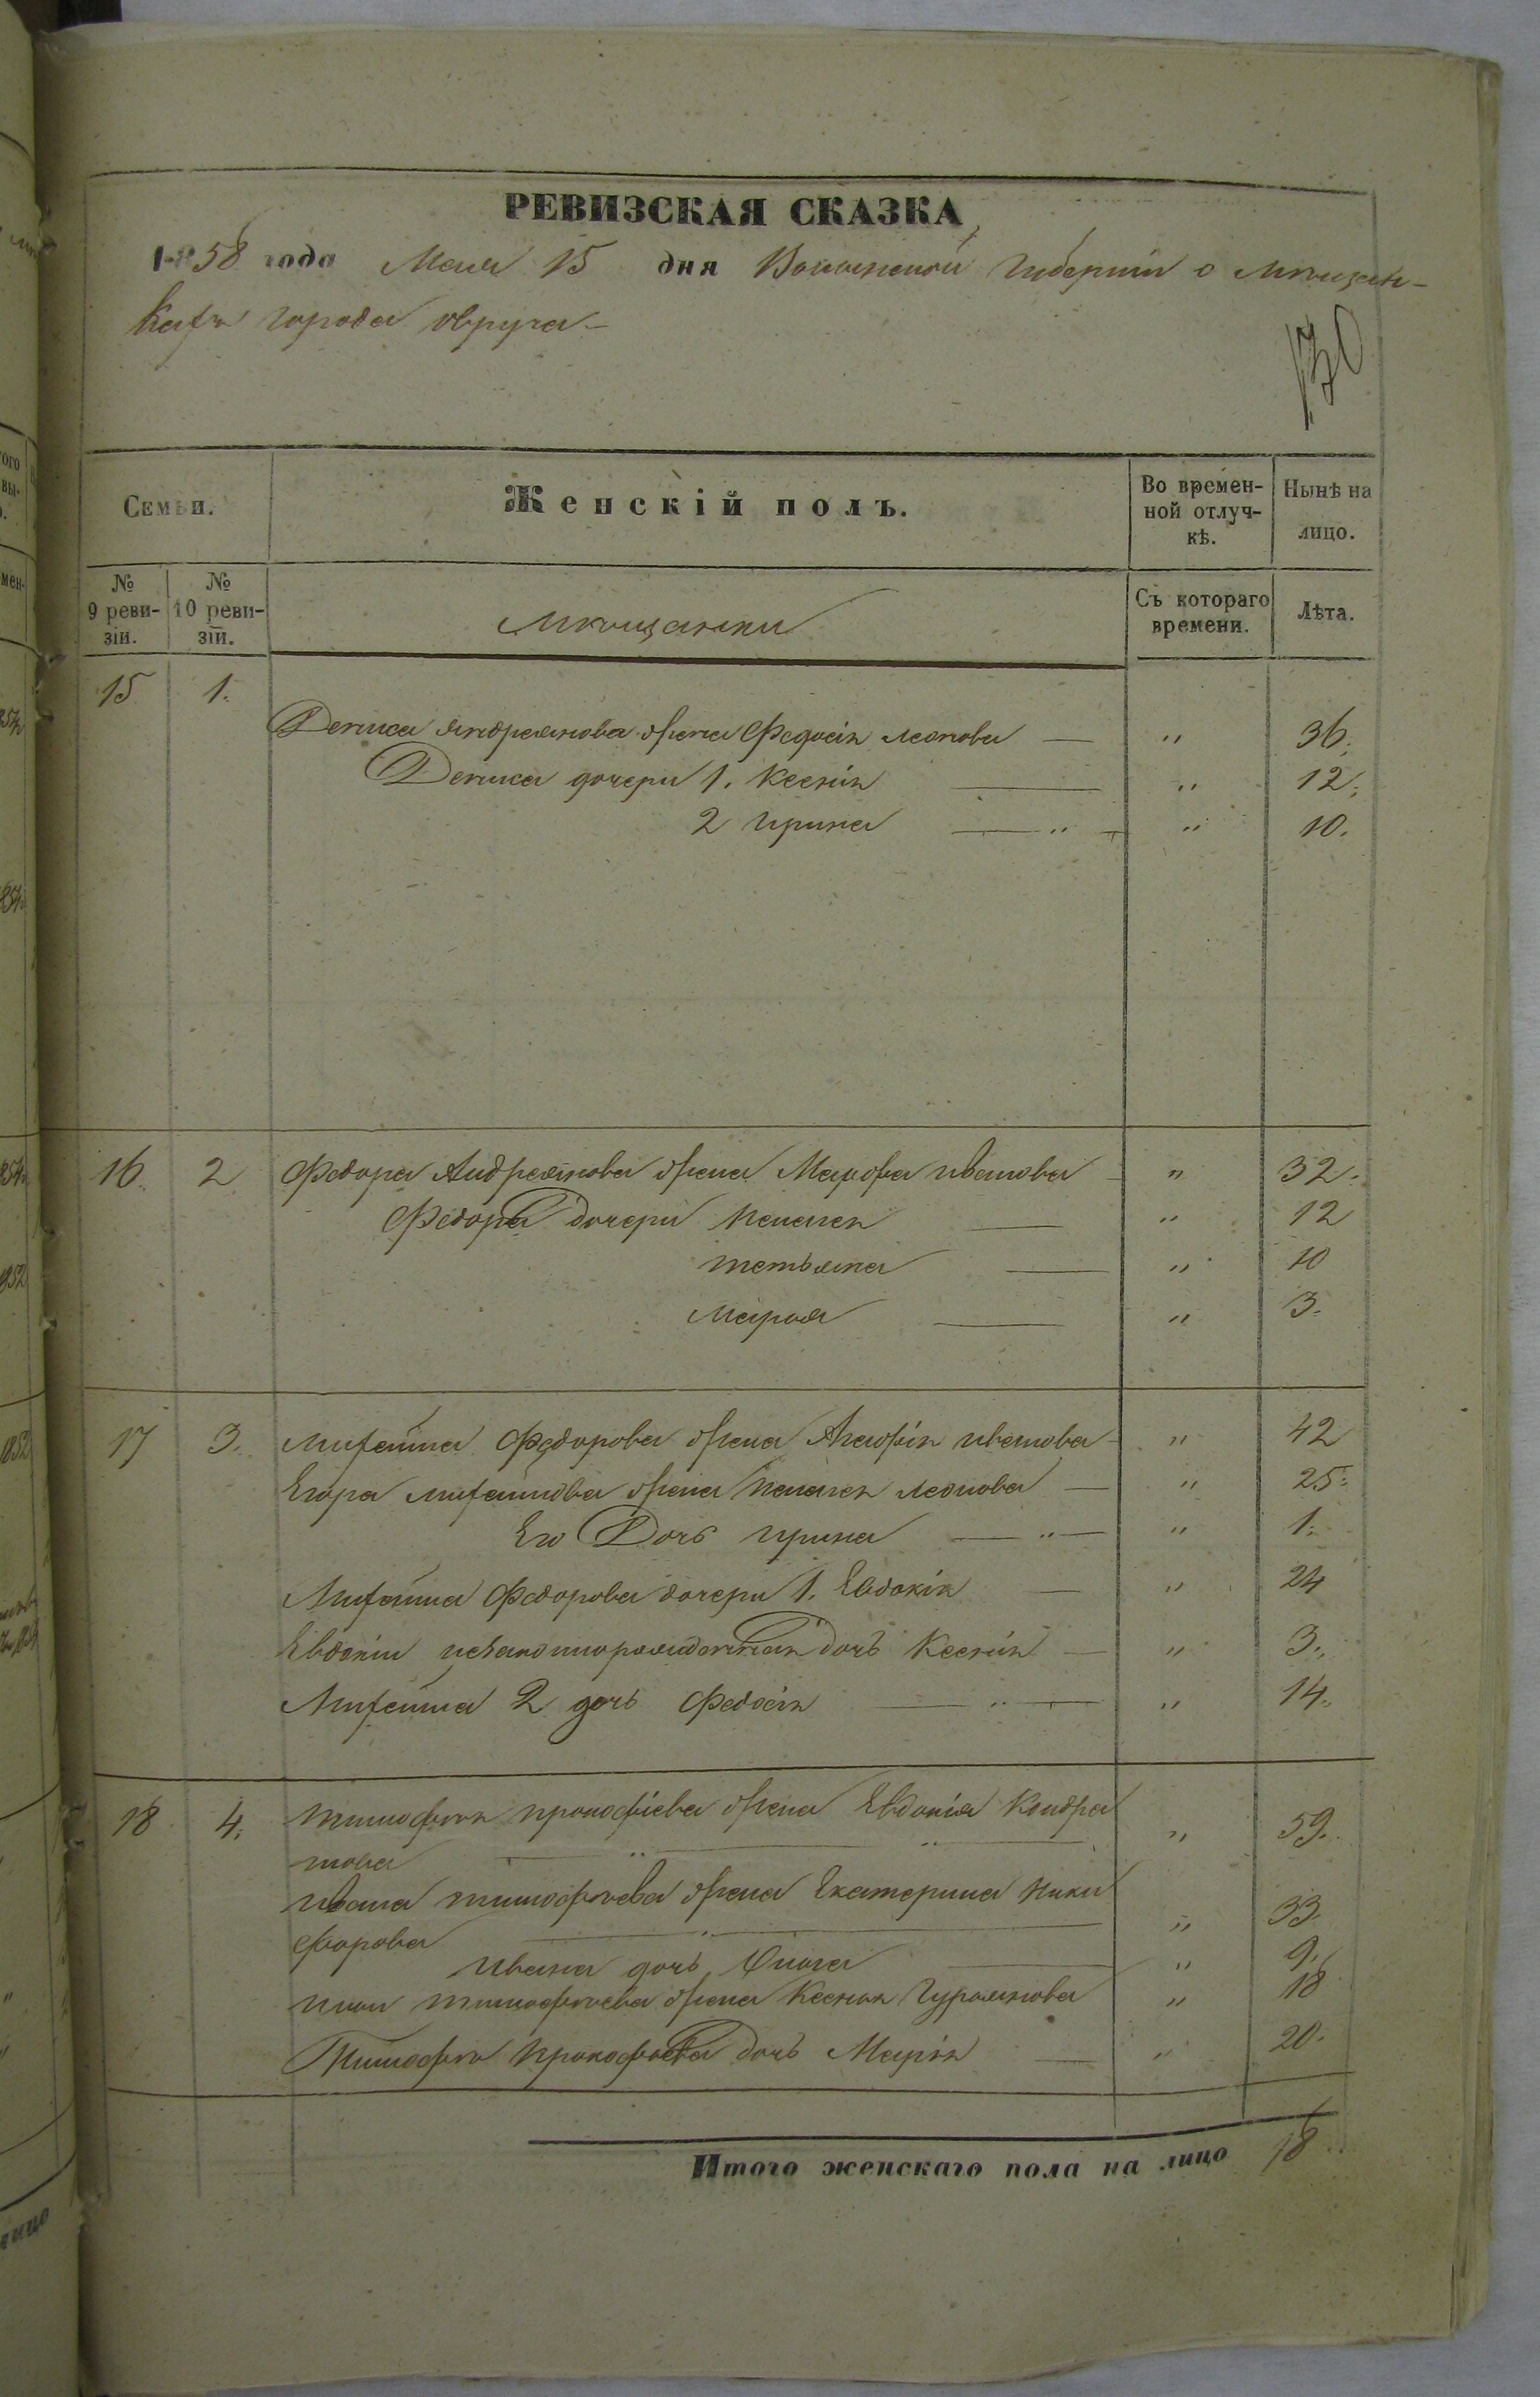 РЕВИЗСКАЯ СКАЗКА
1858 года Мая 15 дня Волынской Губерніи о мѣщан-
кахъ города овруча
130
Семьи.
Женскій полъ.
Во времен-
ной отлуч-
кѣ.
Нынѣ на
лицо.
№
9 реви-
зіи.
№
10 реви-
зіи.
мѣщанки
Съ котораго
времени.
Лѣта.
15 1. Дениса яндреянова жена Федосія леонова — " 36.
Дениса дочери 1. Ксенія — " 12.
2 ирина — " — " 10.
16. 2 Федора Андреянова жена Марфа иванова " 32.
Федора дочери пелагея — " 12
татьяна — " 10
Марья — " 3.
17 3. михайла Федорова жена Агафія иванова " 42
Егора михайлова жена пелагея леонова — " 25.
Его Дочь ирина — " — " 1.
Михайла Федорова дочери 1. Евдокія — " 24
Евдокіи незаконнорожденная дочь Ксенія — " 3.
Михайла 2 дочь Федосія — " — " 14.
18 4. тимофея прокофіева жена Евдокія Кондра
това — " — " " 59.
ивана тимофѣева жена Екатерина ники
форова — " 33.
ивана дочь — " 9.
тимофѣева жена Ксенья Гурьянова " 18
Тимофея прокофьева дочь Марія — " 20.
Итого женскаго пола на лицо 18